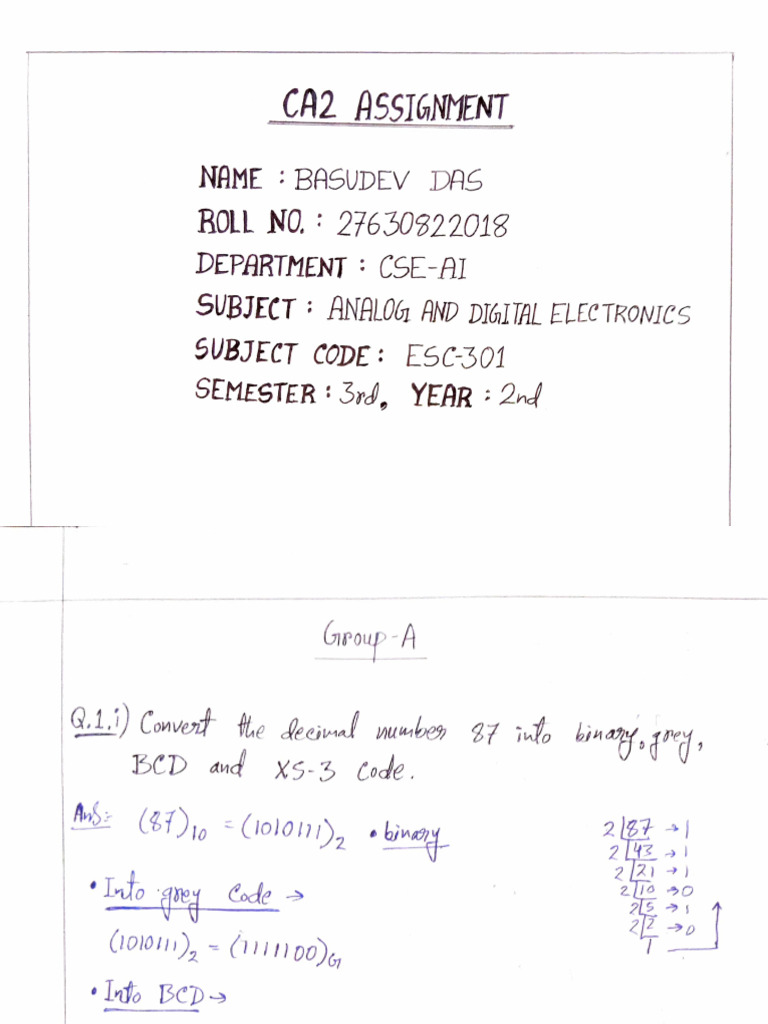 CA2 ASSIGNMENT
NAME : BASUDEV DAS
ROLL NO. : 27630822018
DEPARTMENT : CSE-AI
SUBJECT : ANALOG AND DIGITAL ELECTRONICS
SUBJECT CODE : ESC-301
SEMESTER : 3rd, YEAR : 2nd
Group-A
Q.1.i) Convert the decimal number 87 into binary, grey,
BCD and XS-3 code.
Ans:- (87)₁₀ = (1010111)₂ • binary
2 87 → 1
2 43 → 1
2 21 → 1
2 10 → 0
2 5 → 1
2 2 → 0
1
• Into grey code →
(1010111)₂ = (1111100)G
• Into BCD →